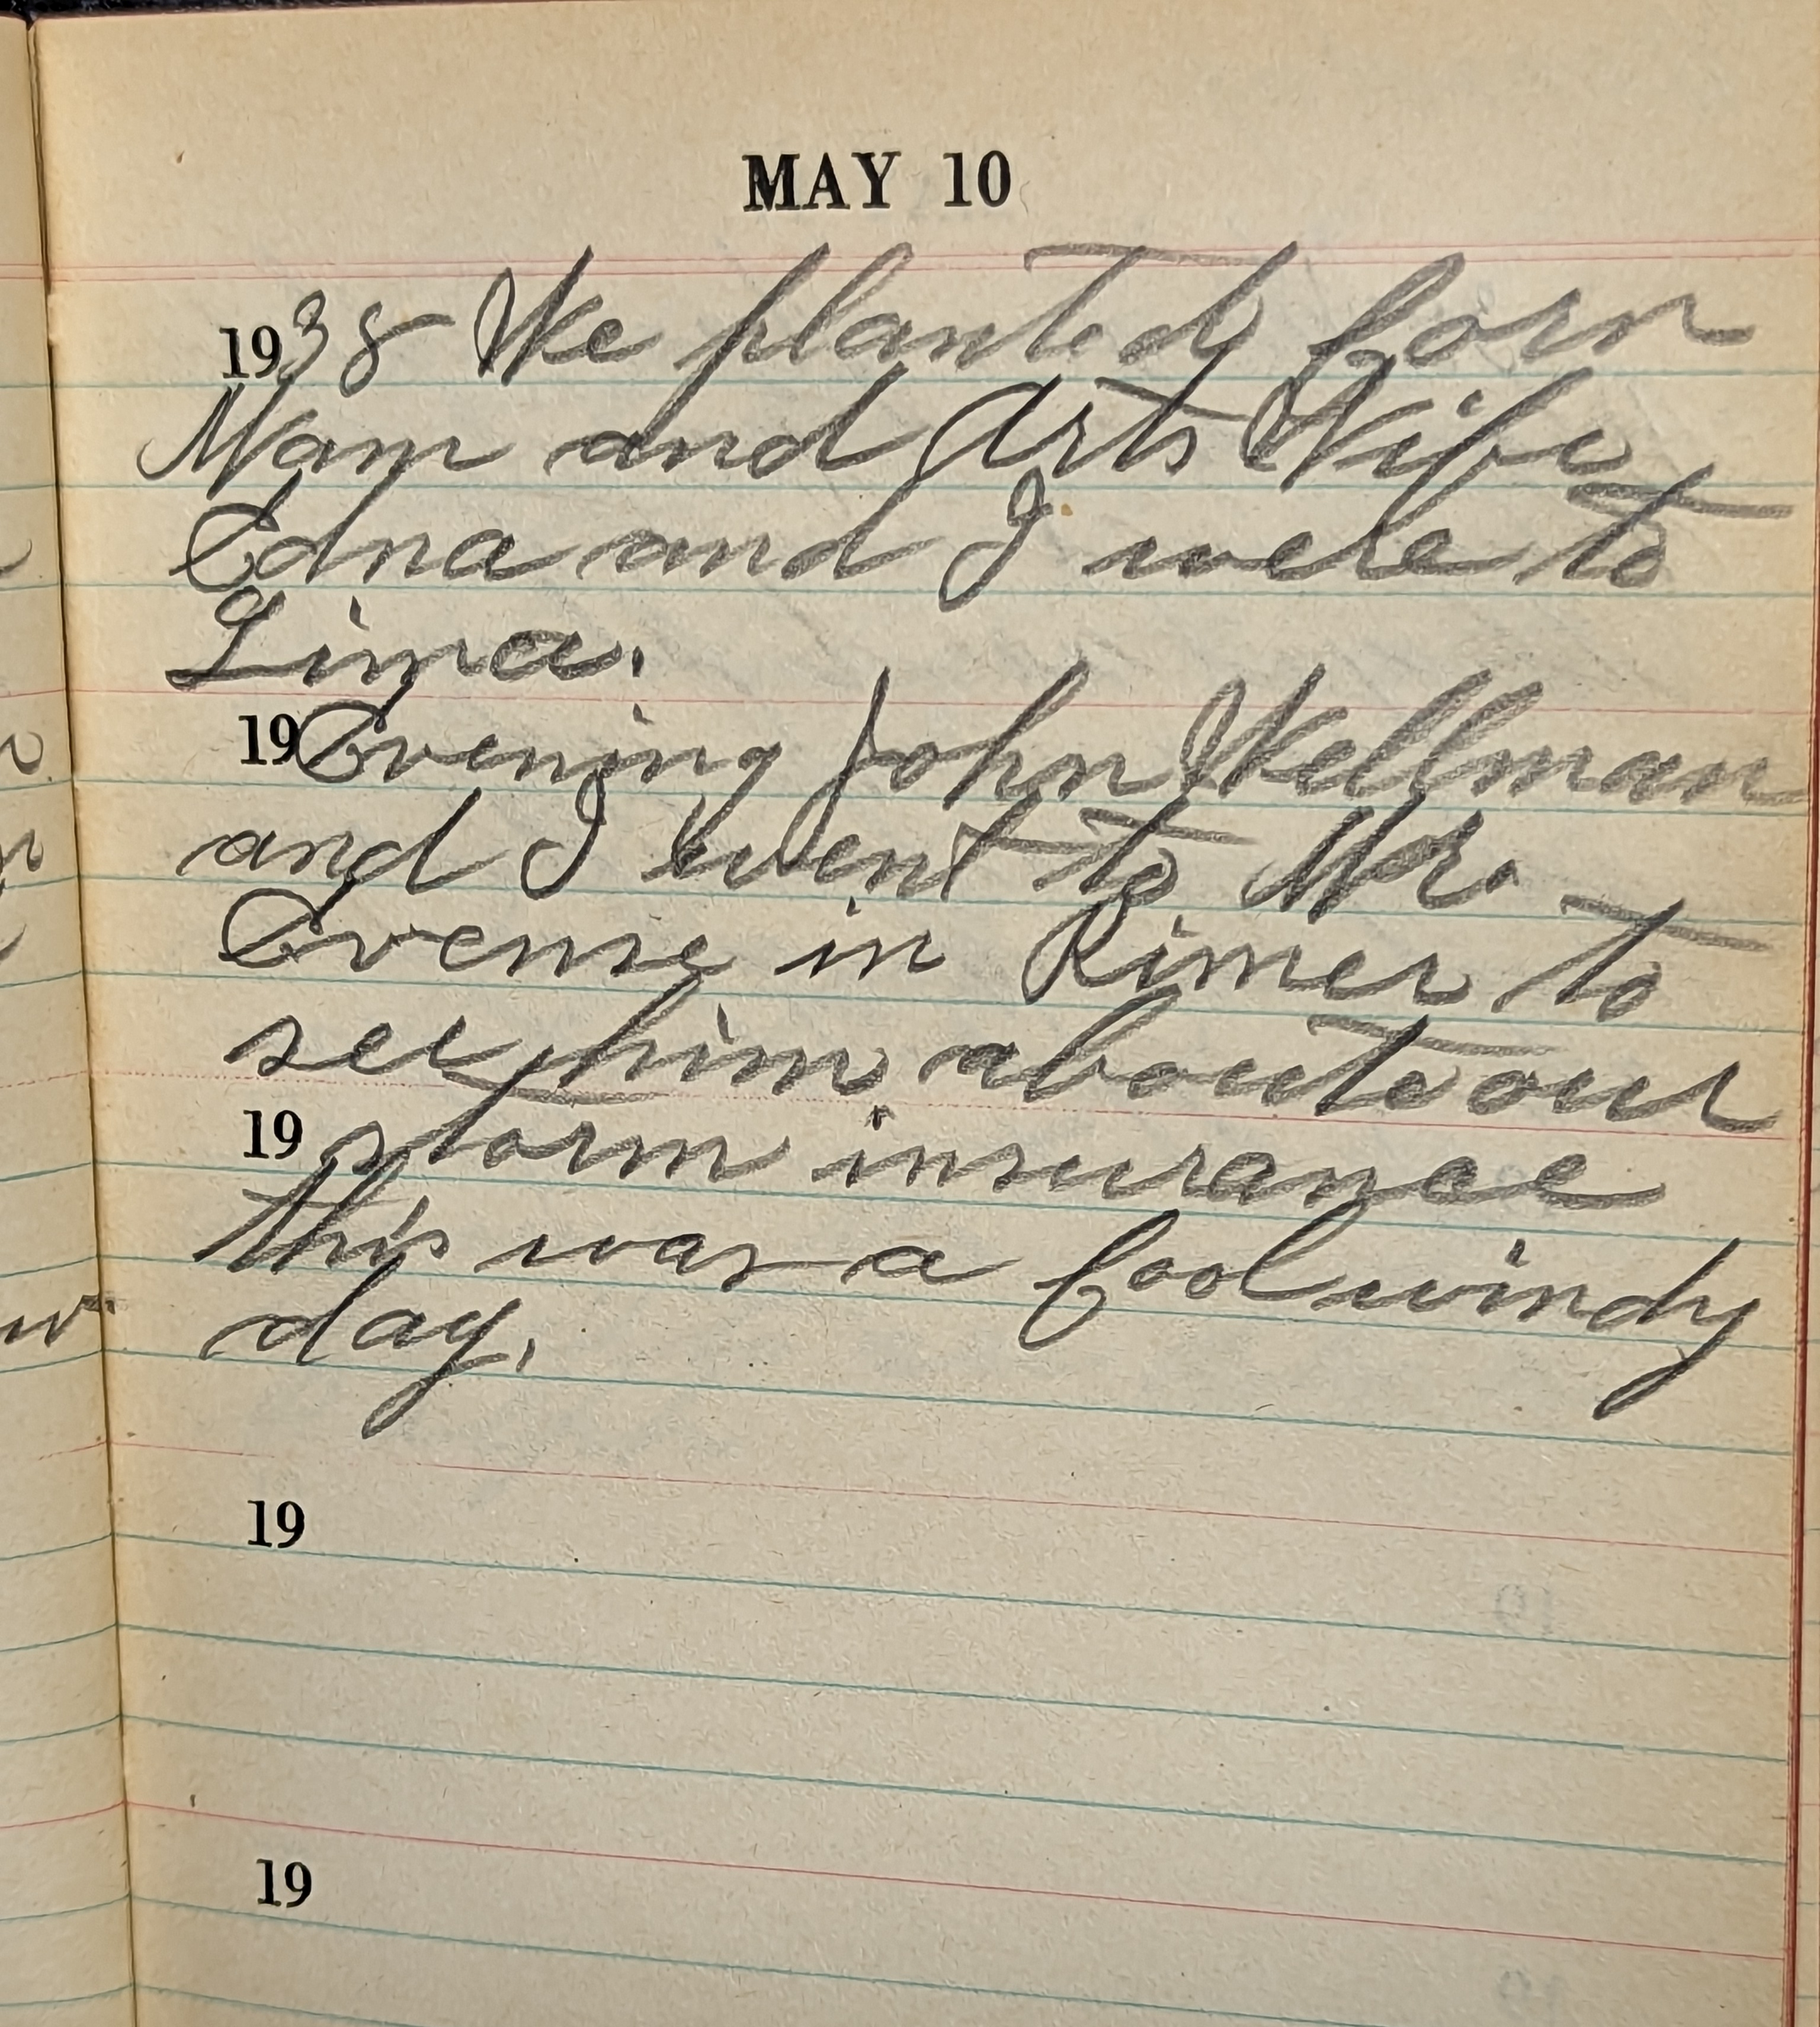 MAY 10
1938 We planted Corn
Mam and Arts Wife
Edna and I were to
Lima.
19 Evening John Wellman
and I went to Mr.
in Rimer to
see him about our
19 storm insurance
this was a Cool windy
day.
19
19